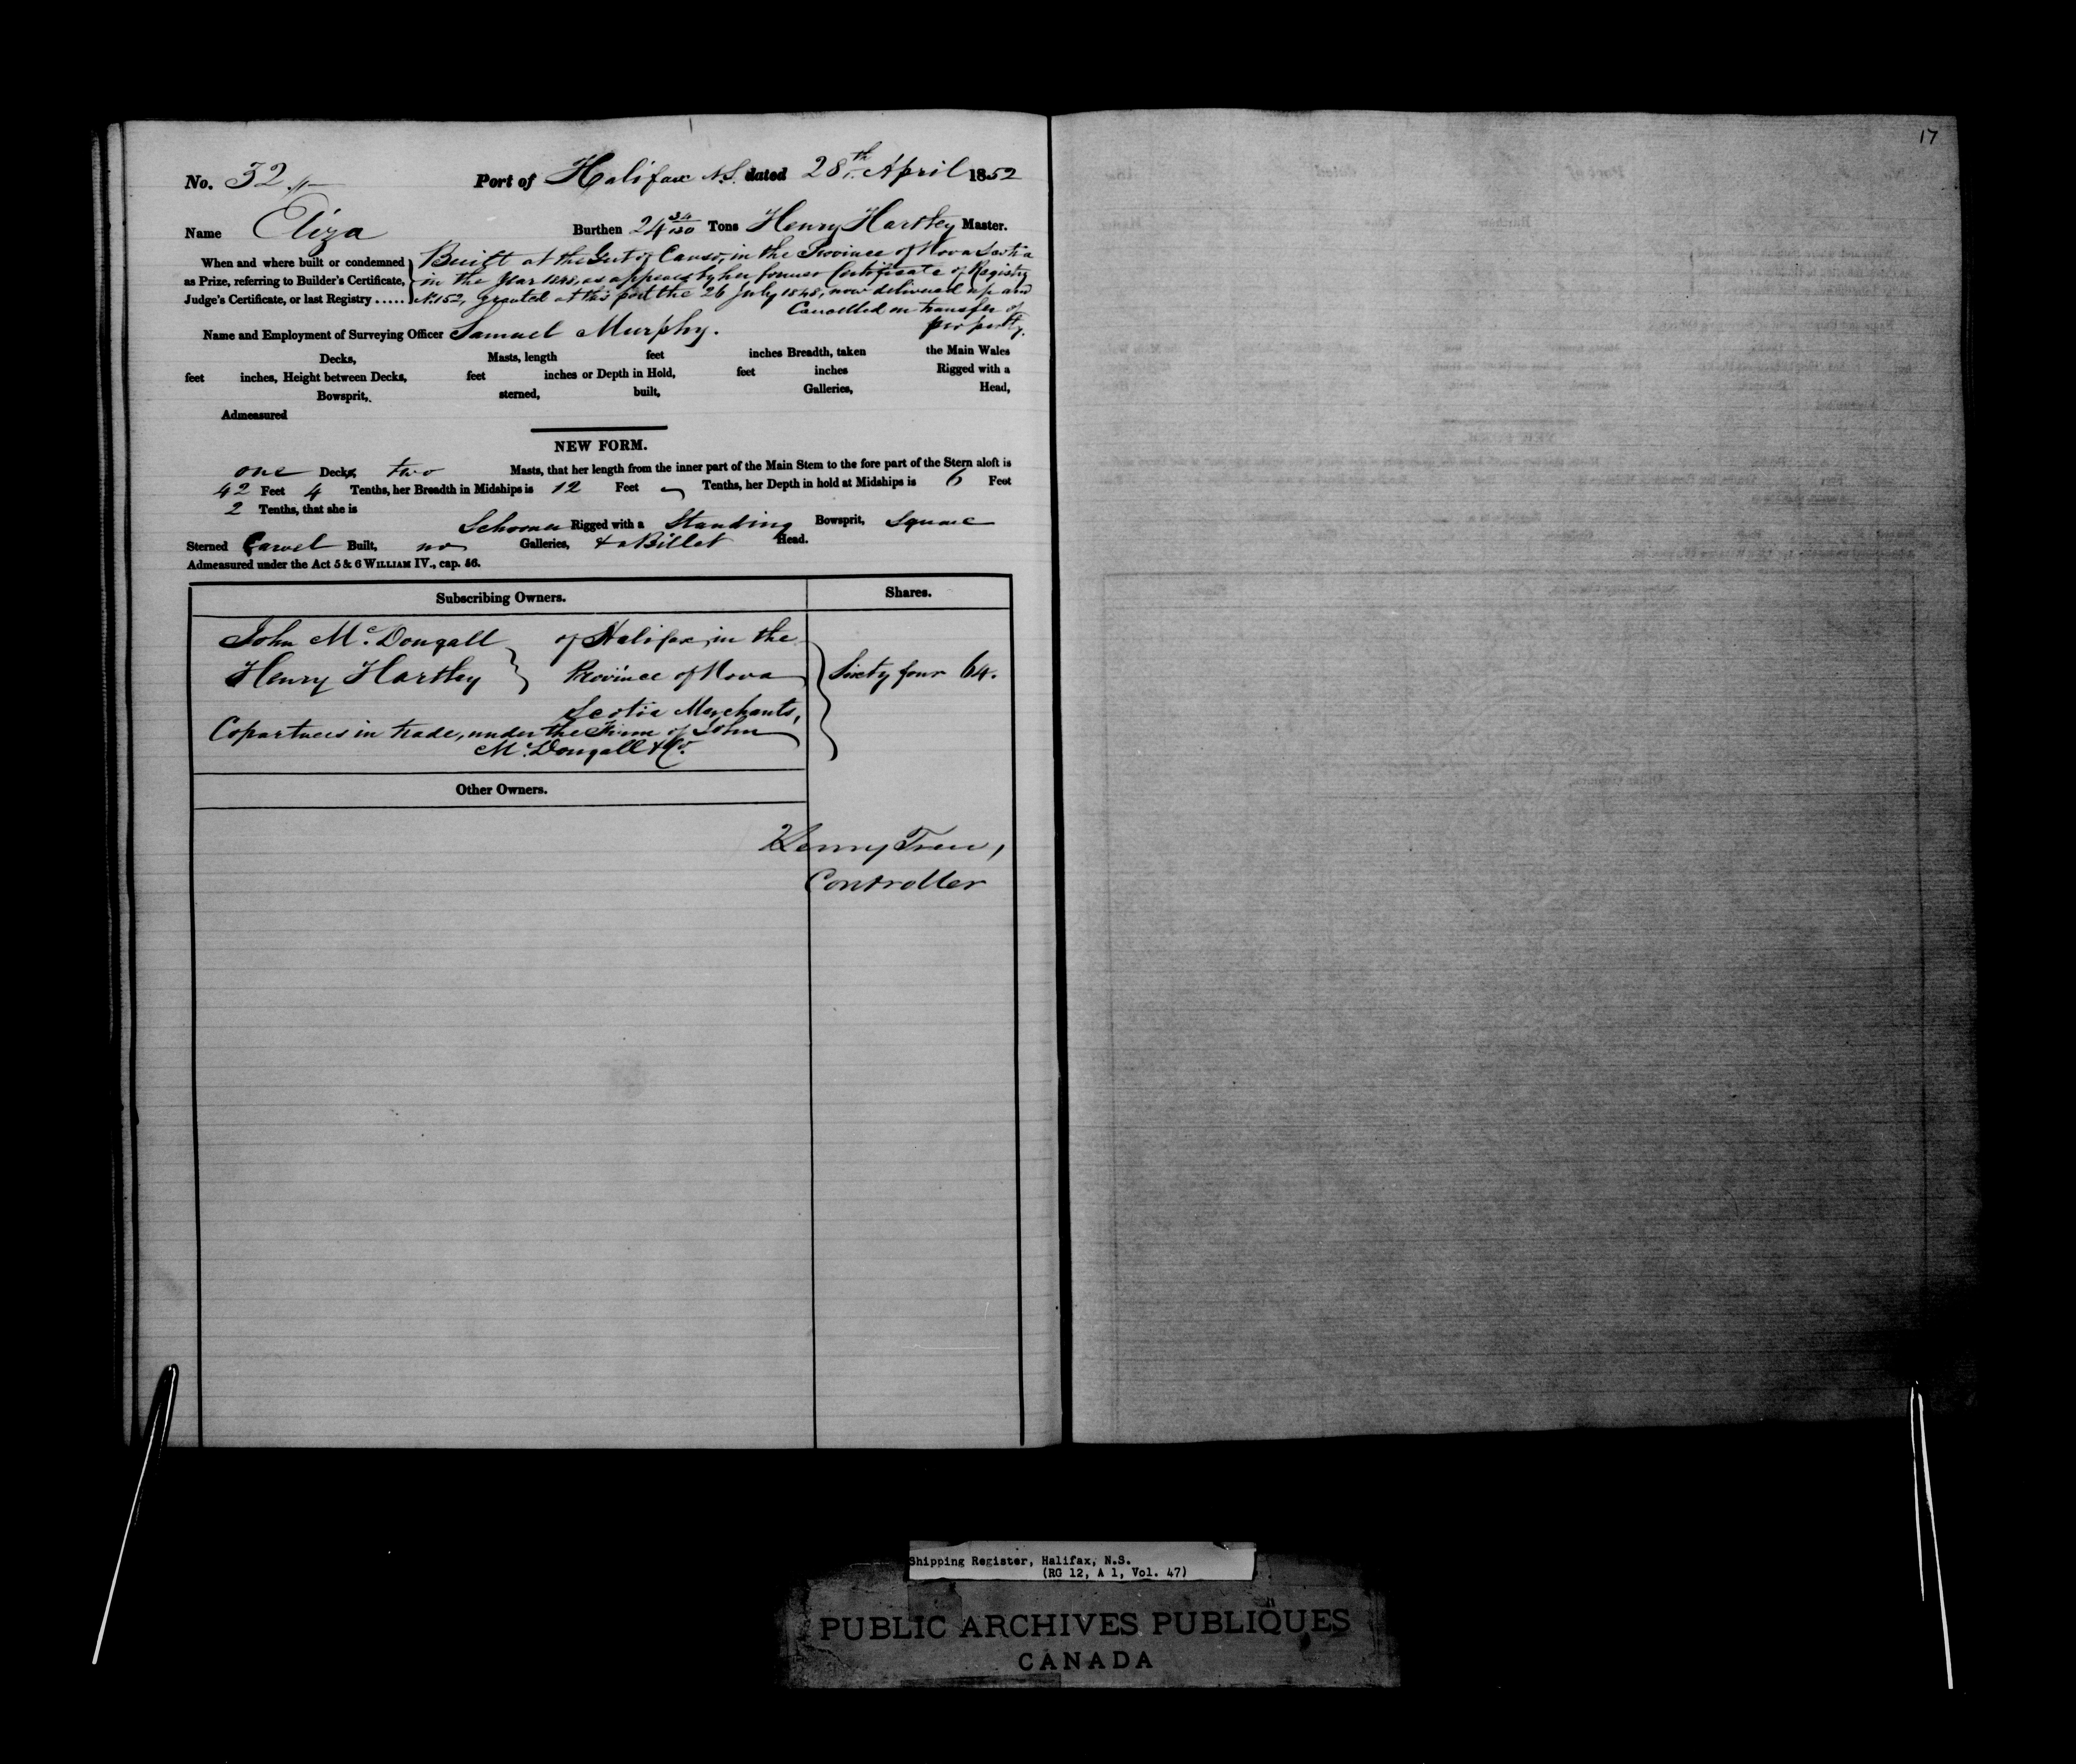 17
No. 32 Port of Halifax N.S. dated 28th April 1852
Name Eliza Burthen 24 34/100 Tons Henry Hartley Master.
When and where built or condemned as Prize, referring to Builder's Certificate, Judge's Certificate, or last Registry .....
Built at the Gut of Canso, in the Province of Nova Scotia
in the Year 1848, as appears by her former Certificate of Registry
No 152, granted at this port the 26 July 1848, now delivered up and
Cancelled on transfer of
property.
Name and Employment of Surveying Officer Samuel Murphy.
Decks, Masts, length feet inches Breadth, taken the Main Wales
feet inches, Height between Decks, feet inches or Depth in Hold, feet inches Rigged with a
Bowsprit, sterned, built, Galleries, Head,
Admeasured
NEW FORM.
one Decks, two Masts, that her length from the inner part of the Main Stem to the fore part of the Stern aloft is
42 Feet 4 Tenths, her Breadth in Midships is 12 Feet Tenths, her Depth in hold at Midships is 6 Feet
2 Tenths, that she is
Schooner Rigged with a Standing Bowsprit, Square
Sterned Carvel Built, no Galleries, & a Billet Head.
Admeasured under the Act 5 & 6 WILLIAM IV., cap. 56.
Subscribing Owners. Shares.
John McDougall of Halifax, in the
Henry Hartley Province of Nova Sixty four 64.
Scotia Merchants,
Copartners in trade, under the Firm of John
McDougall & Co.
Other Owners.
Henry Trew,
Controller
Shipping Register, Halifax, N.S.
(RG 12, A 1, Vol. 47)
PUBLIC ARCHIVES PUBLIQUES
CANADA